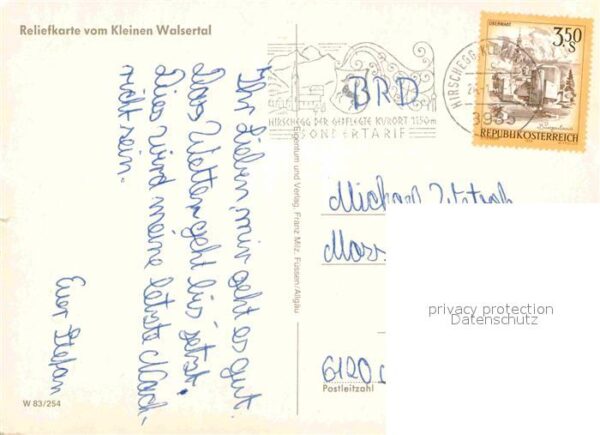 Reliefkarte vom Kleinen Walsertal
Ihr Lieben, mir geht es gut.
Das Wetter geht bis jetzt.
Dies wird meine letzte Nach-
richt sein.
Euer Stefan
W 83/254
Eigentum und Verlag, Franz Milz, Füssen/Allgäu
HIRSCHEGG DER GEPFLEGTE KURORT 1150m
SONDERTARIF
BRD
HIRSCHEGG-KLEINW
OBERWART
3.50
S
REPUBLIK ÖSTERREICH
Michael
6120
Postleitzahl
privacy protection
Datenschutz